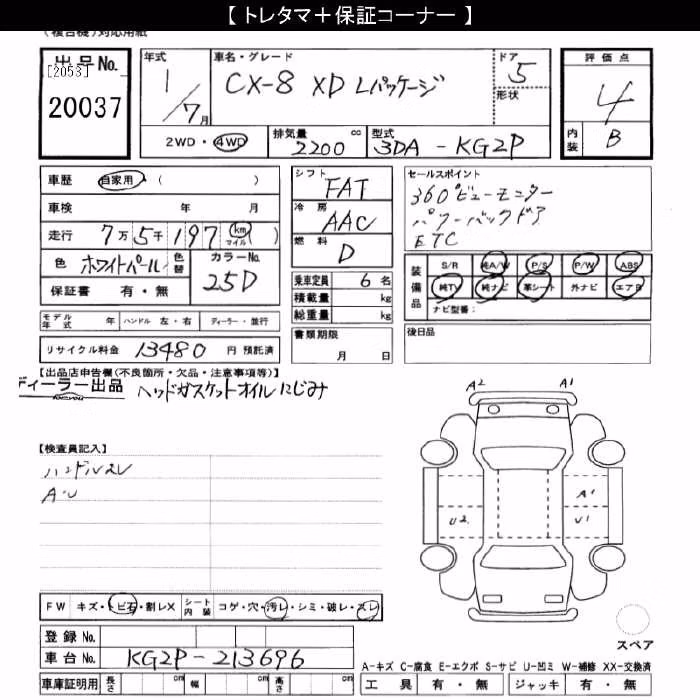 【 トレタマ＋保証コーナー 】
(複合機)対応用紙
出品No.
[2053]
20037
年式
1/7月
車名・グレード
CX-8 XD Lパッケージ
ドア
5
形状
評価点
4
内装 B
2WD・4WD
排気量 cc
2200
型式
3DA-KG2P
車歴 自家用・( )
車検 年 月
走行 7万5千197 km マイル ( )
色 ホワイトパール 色替
カラーNo.
25D
保証書 有・無
シフト
FAT
冷房
AAC
燃料
D
乗車定員 6名
積載量 kg
総重量 kg
書類期限
月 日
セールスポイント
360°ビューモニター
パワーバックドア
ETC
装備品
S/R 純A/W P/S P/W ABS
純TV 純ナビ 革シート 外ナビ エアB
ナビ型番：
後日品
モデル年式 年 ハンドル 左・右 ディーラー・並行
リサイクル料金 13480 円 預託済
【出品店申告欄(不良箇所・欠品・注意事項等)】
ディーラー出品 ヘッドガスケットオイルにじみ
【検査員記入】
ハンドルスレ
A・U
A2 A1
A1
U2 U1
スペア
FW キズ・トビ石・割レX シート内装 コゲ・穴・汚レ・シミ・破レ・スレ
登録No.
車台No. KG2P-213696
車庫証明用 長さ cm 幅 cm 高さ cm
A-キズ C-腐食 E-エクボ S-サビ U-凹ミ W-補修 XX-交換済
工具 有・無 ジャッキ 有・無